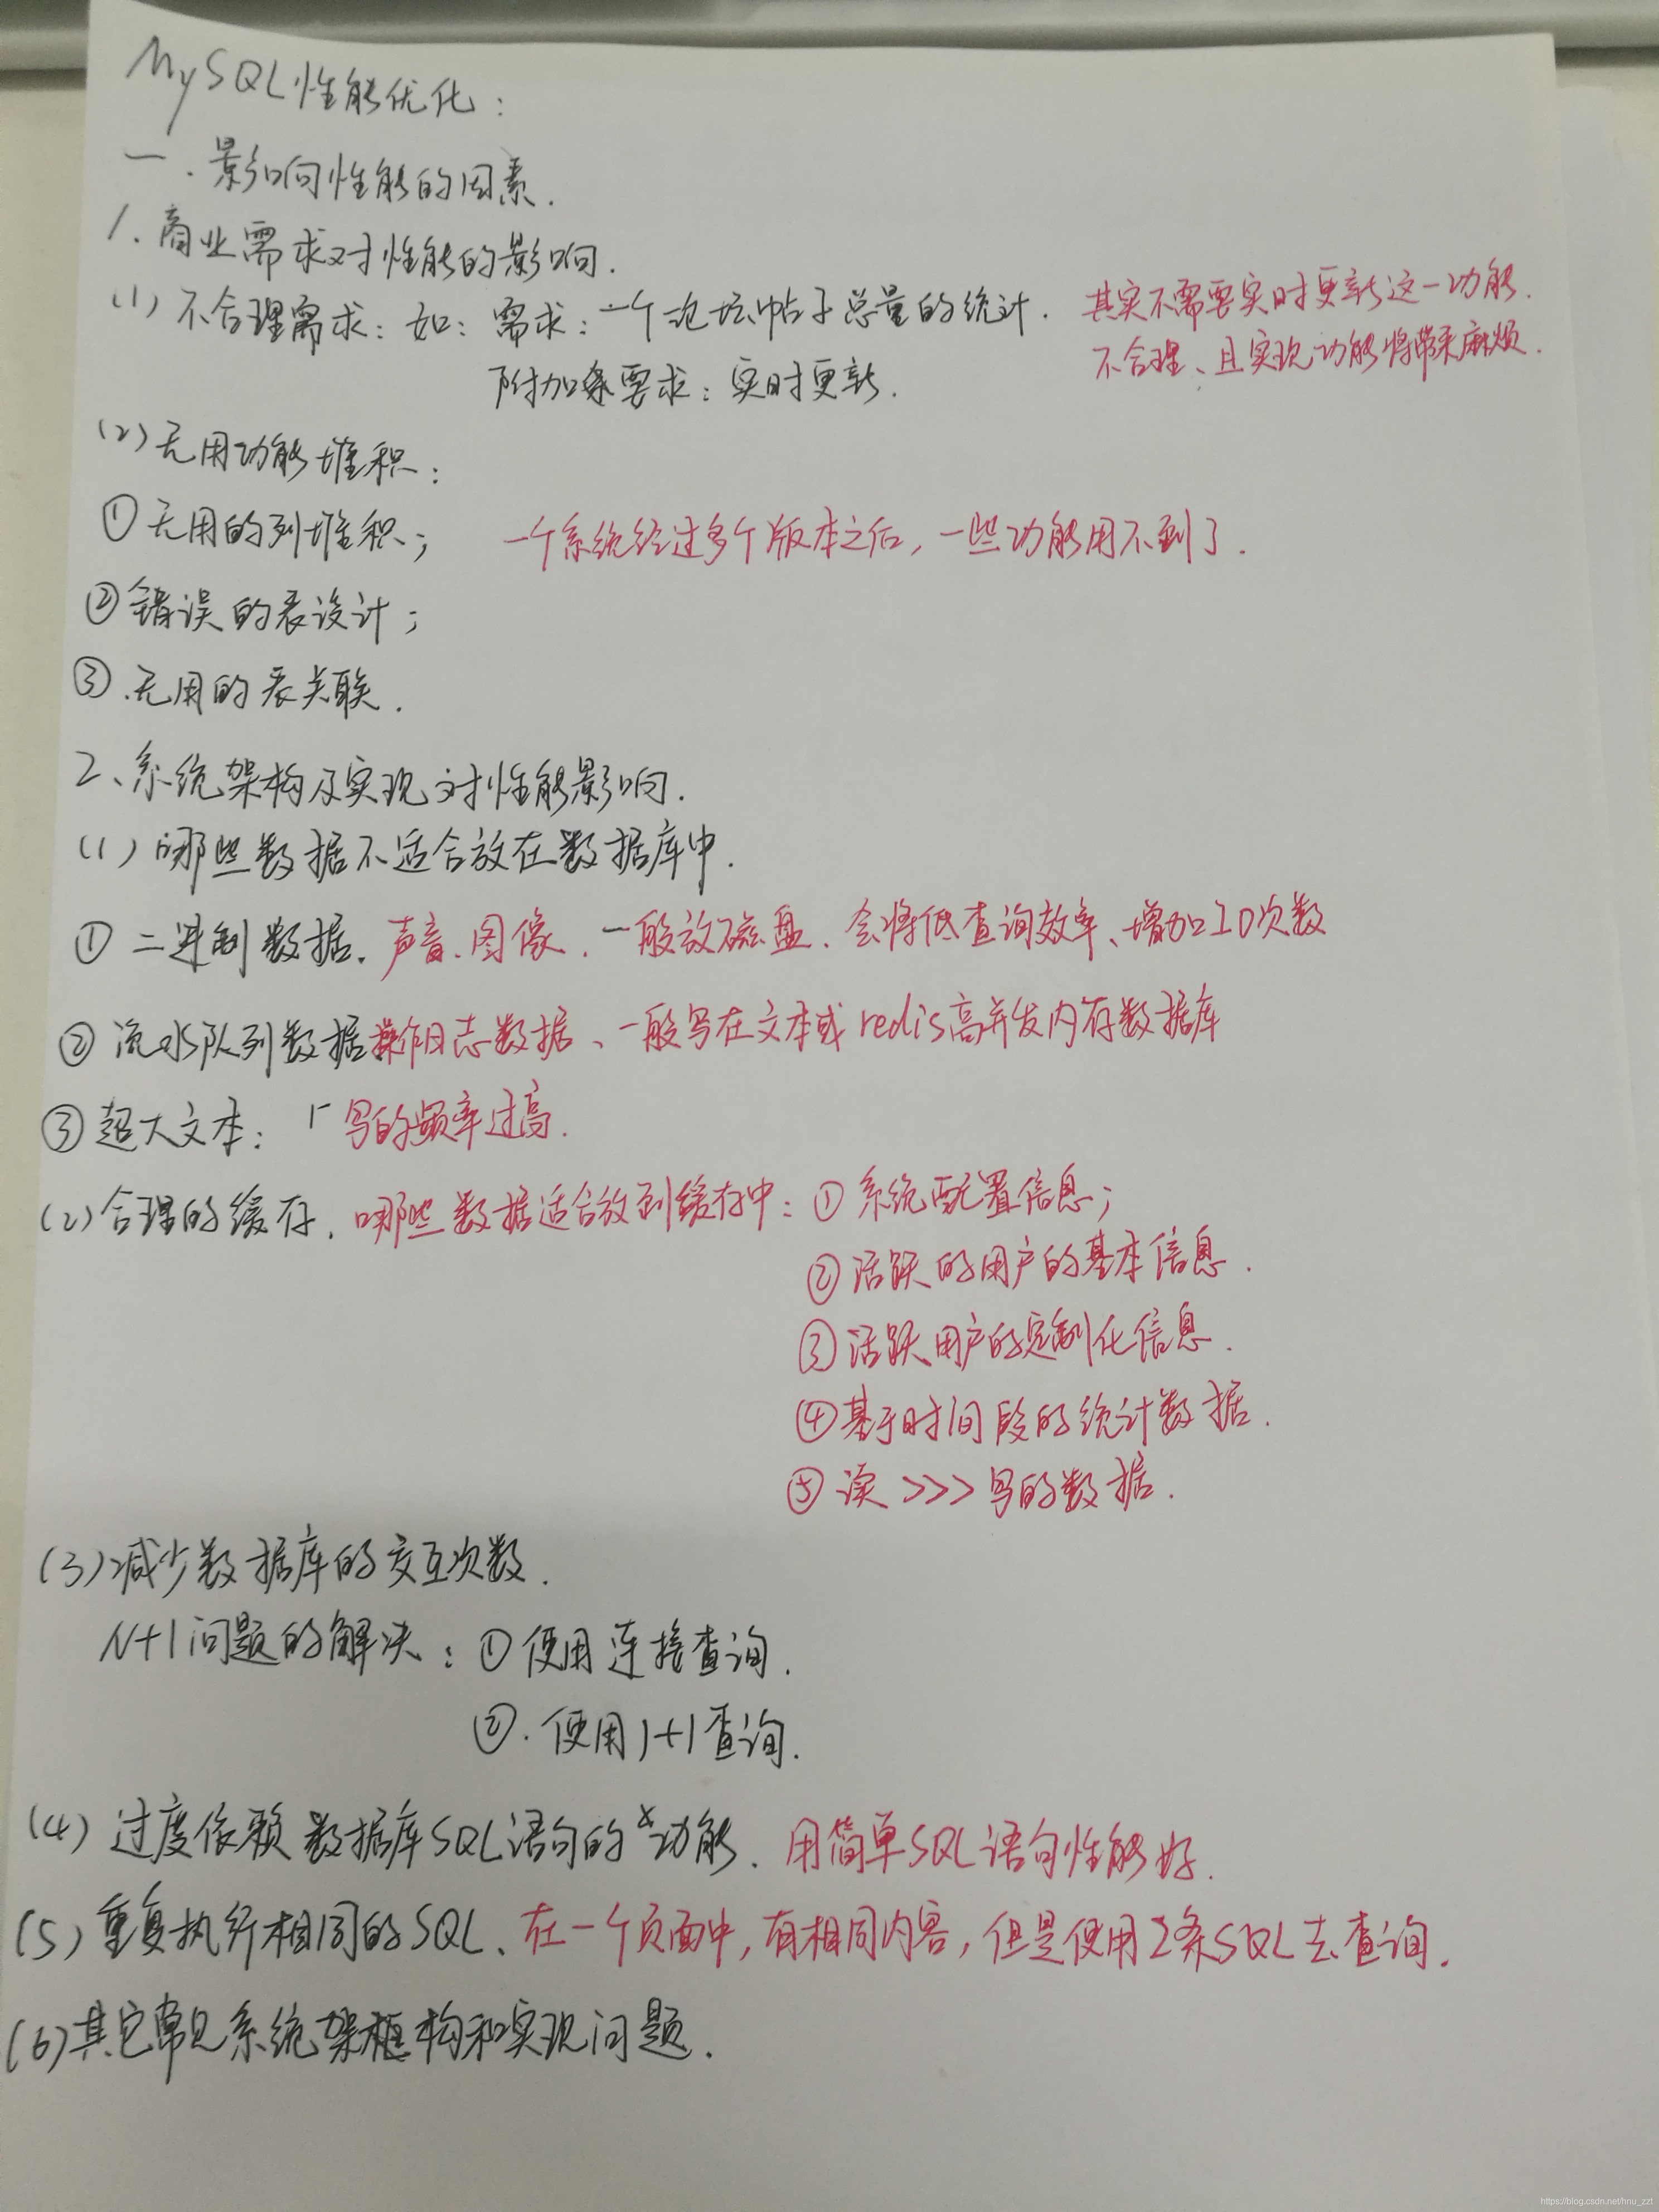 MySQL性能优化：
一．影响性能的因素．
1．商业需求对性能的影响．
(1) 不合理需求：如：需求：一个论坛帖子总量的统计． 其实不需要实时更新这一功能．
附加要求：实时更新． 不合理、且实现功能将带来麻烦．
(2) 无用功能堆积：
①无用的列堆积； 一个系统经过多个版本之后，一些功能用不到了．
②错误的表设计；
③．无用的表关联．
2、系统架构及实现对性能影响．
(1) 哪些数据不适合放在数据库中．
① 二进制数据．声音、图像．一般放磁盘．会将低查询效率、增加IO次数
② 流水队列数据操作日志数据、一般写在文本或redis高并发内存数据库
③ 超大文本： 写的频率过高．
(2) 合理的缓存．哪些数据适合放到缓存中：① 系统配置信息；
②活跃的用户的基本信息．
③活跃用户的定制化信息．
④基于时间段的统计数据．
⑤ 读 >>> 写的数据．
(3) 减少数据库的交互次数．
N+1问题的解决：①使用连接查询．
②．使用1+1查询．
(4) 过度依赖数据库SQL语句的功能．用简单SQL语句性能好．
(5) 重复执行相同的SQL、在一个页面中，有相同内容，但是使用2条SQL去查询．
(6) 其它常见系统架构和实现问题．
https://blog.csdn.net/hnu_zzt